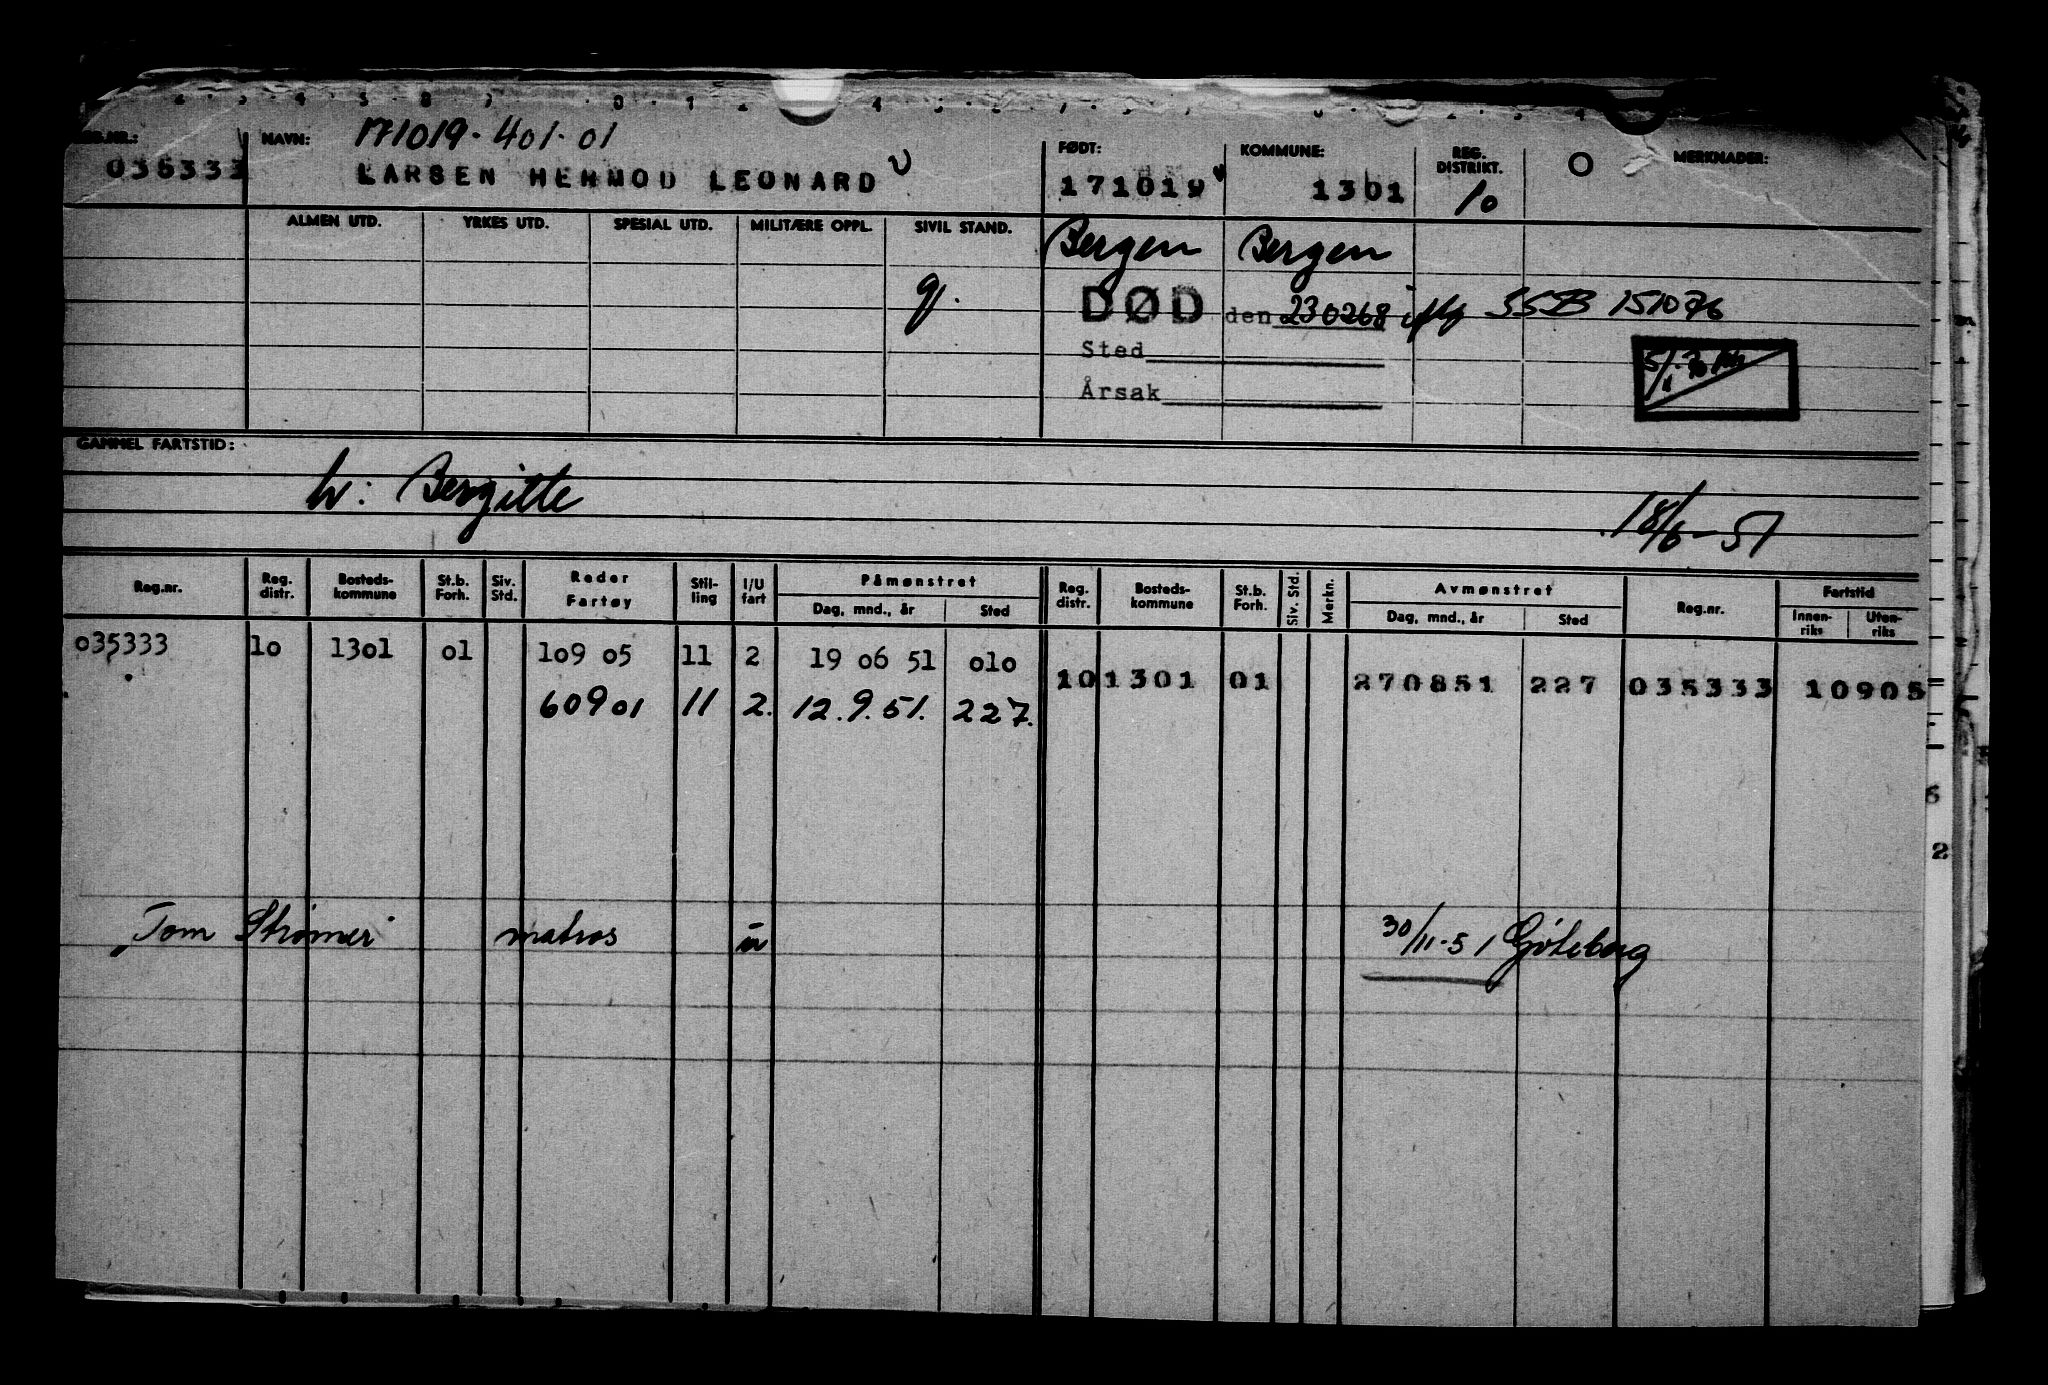 REG.NR.: NAVN: 171019-401-01 FØDT: KOMMUNE: REG. DISTRIKT. MERKNADER:
035333 LARSEN HERMOD LEONARD 171019 1301 10
ALMEN UTD. YRKES UTD. SPESIAL UTD. MILITÆRE OPPL. SIVIL STAND. Bergen Bergen
g. DØD den 230268 iflg SSB 151076
Sted
Årsak
GAMMEL FARTSTID:
h: Bergitte
18/6-51
Reg.nr. Reg. distr. Bosteds-kommune St.b. Forh. Siv. Std. Reder Fartøy Stil-ling I/U fart Påmønstret Dag, mnd., år Sted Reg. distr. Bosteds-kommune St.b. Forh. Siv. Std. Merkn. Avmønstret Dag, mnd., år Sted Reg.nr. Fartstid Innen-riks Uten-riks
035333 10 1301 01 109 05 11 2 19 06 51 010 10 1301 01 270851 227 035333 10905
60901 11 2. 12.9.51. 227.
Tom Strømer matros u 30/11-51 Göteborg